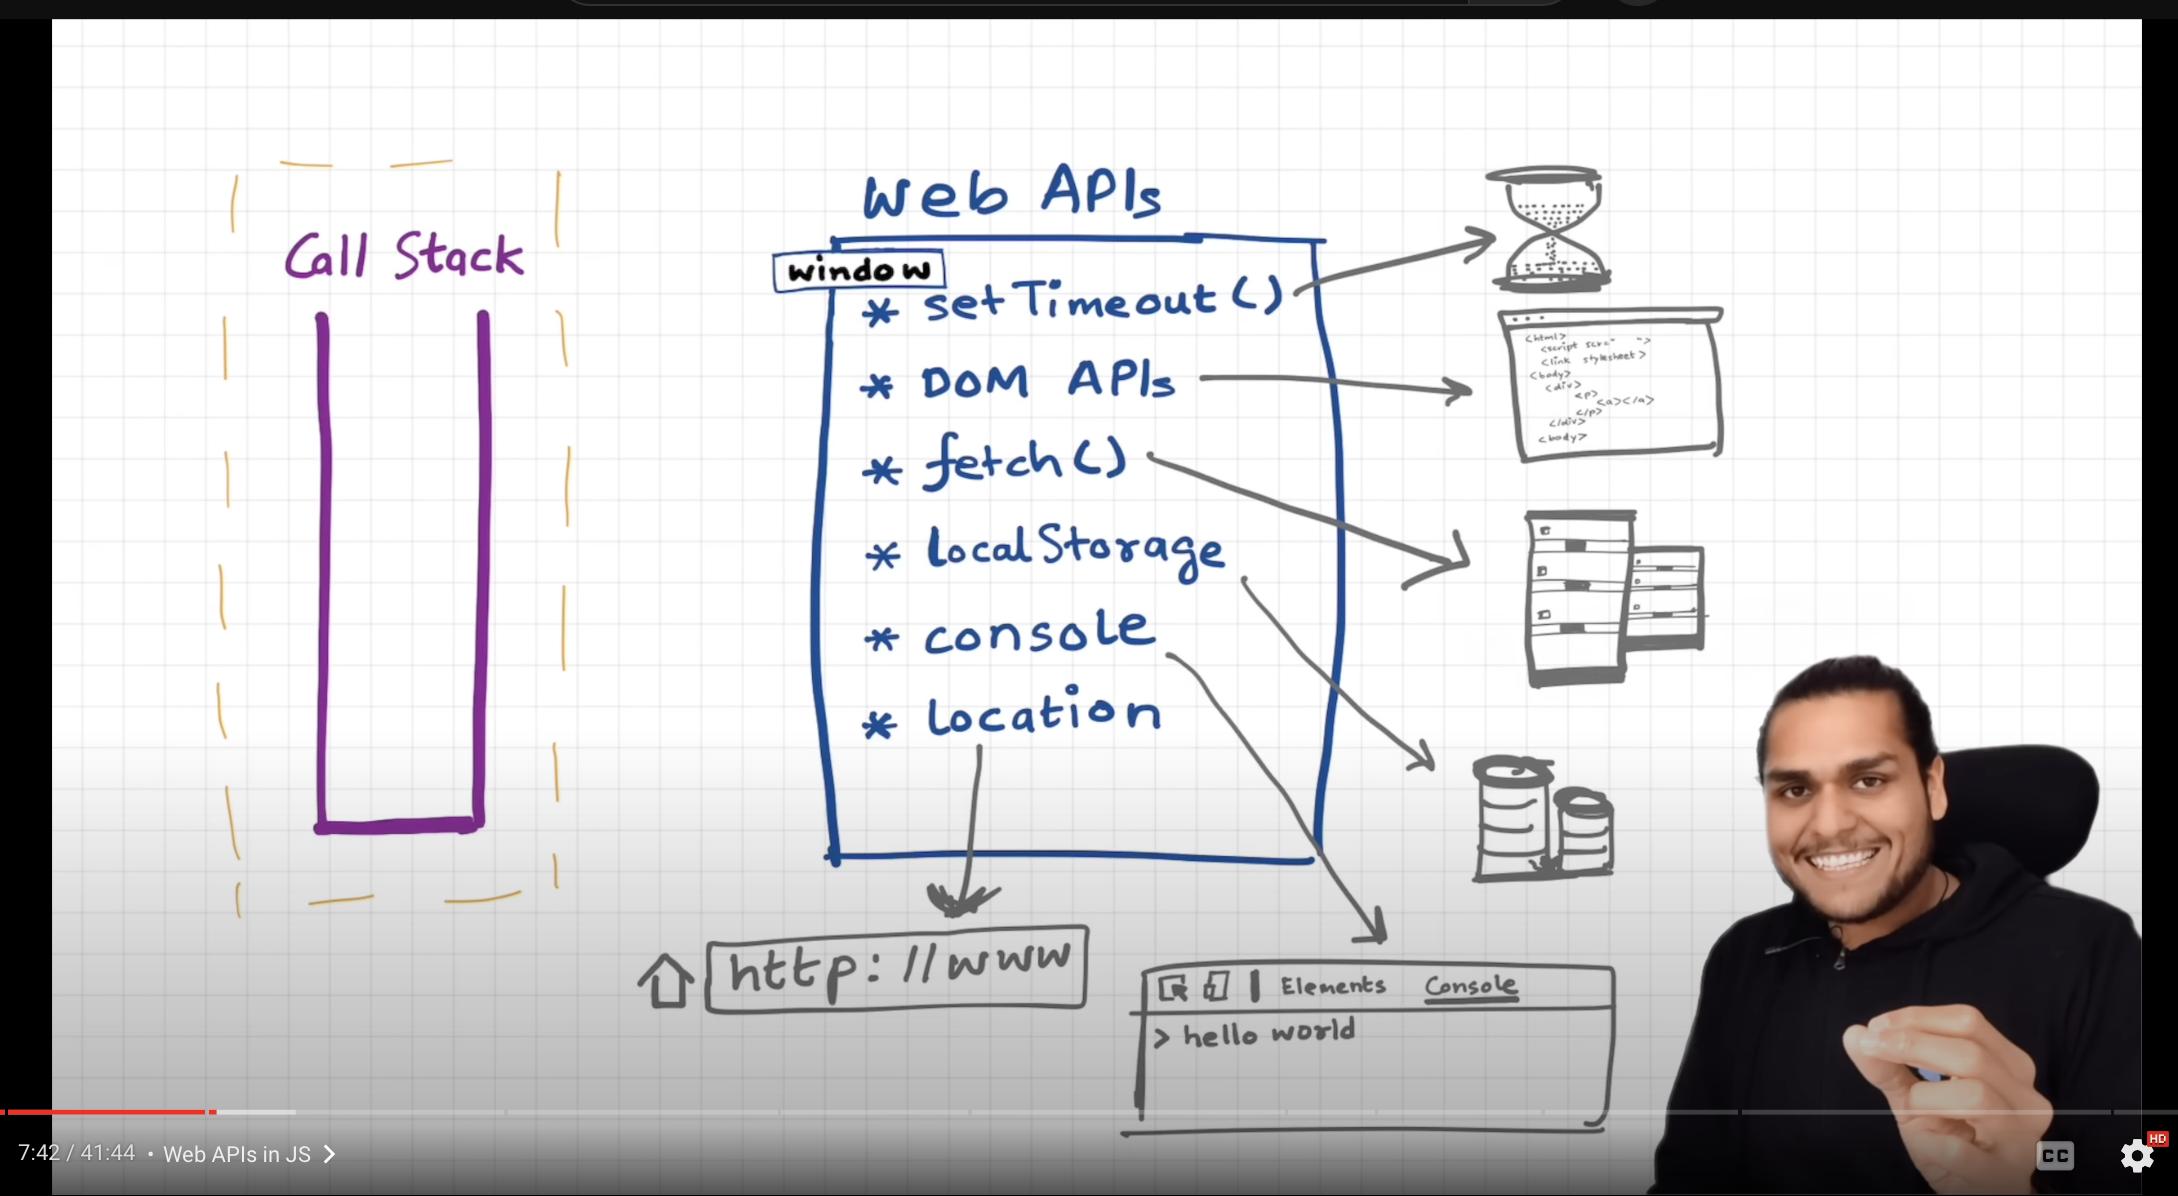 Call Stack
Web APIs
window
* setTimeout()
* DOM APIs
* fetch()
* localStorage
* console
* location
<html>
<script scr=" ">
<link stylesheet>
<body>
<div>
<p>
<a></a>
</p>
</div>
<body>
http://www
Elements Console
> hello world
7:42 / 41:44 • Web APIs in JS
CC
HD